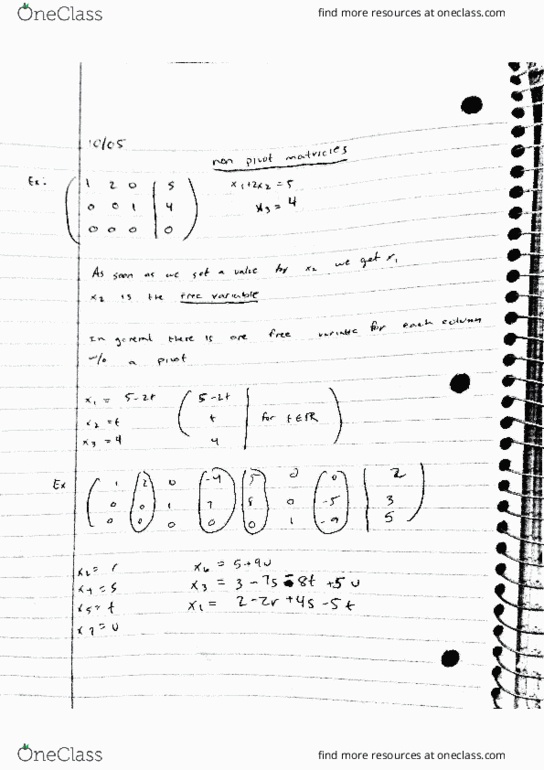 OneClass
find more resources at oneclass.com
10/05
non pivot matricies
Ex:
1 2 0 | 5
0 0 1 | 4
0 0 0 | 0
x₁+2x₂ = 5
x₃ = 4
As soon as we set a value for x₂ we get x₁
x₂ is the free variable
In general there is one free variable for each column
w/o a pivot
x₁ = 5-2t
x₂ = t
x₃ = 4
5-2t
t
4
for t∈ℝ
Ex
1 2 0 -4 5 0 0 | 2
0 0 1 7 8 0 -5 | 3
0 0 0 0 0 1 -9 | 5
x₂ = r
x₄ = s
x₅ = t
x₇ = u
x₆ = 5+9u
x₃ = 3-7s-8t+5u
x₁ = 2-2r+4s-5t
OneClass
find more resources at oneclass.com